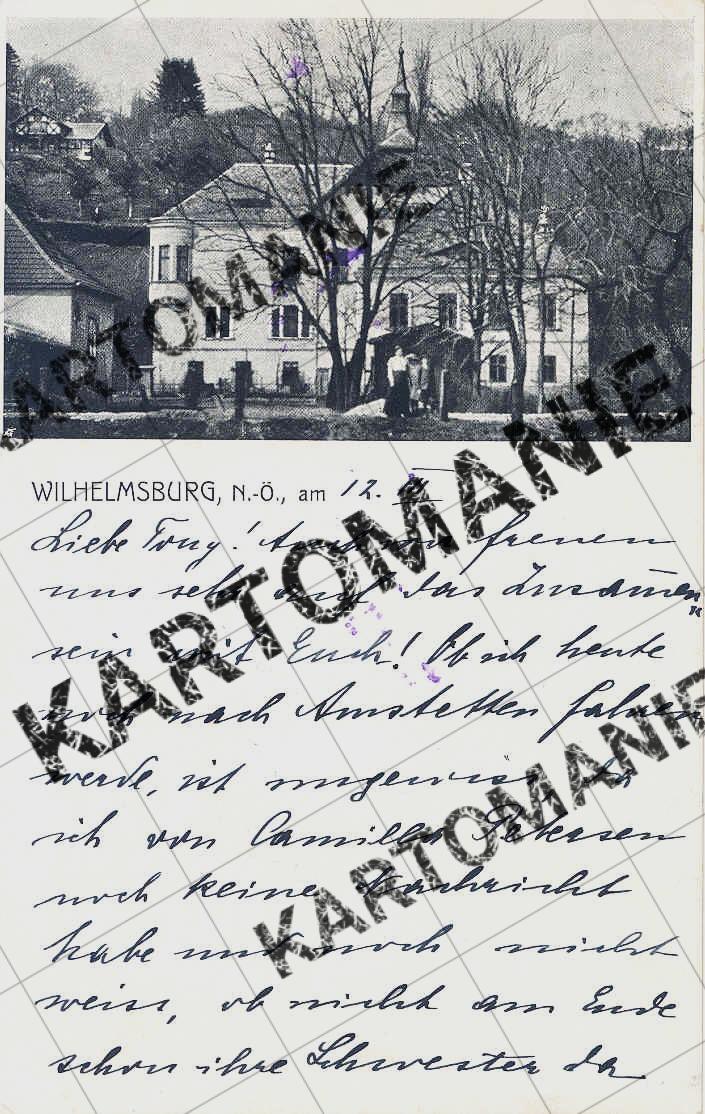 KARTOMANIE
WILHELMSBURG, N.-Ö., am 12.
Liebe Tony! Auch wir freuen
uns sehr auf das Zusam̅en-
sein mit Euch! Ob ich heute
noch nach Amstetten fahren
werde, ist ungewiss, da
ich von Camilla Petersen
noch keine Nachricht
habe und noch nicht
weiss, ob nicht am Ende
schon ihre Schwester da
KARTOMANIE
KARTOMANIE